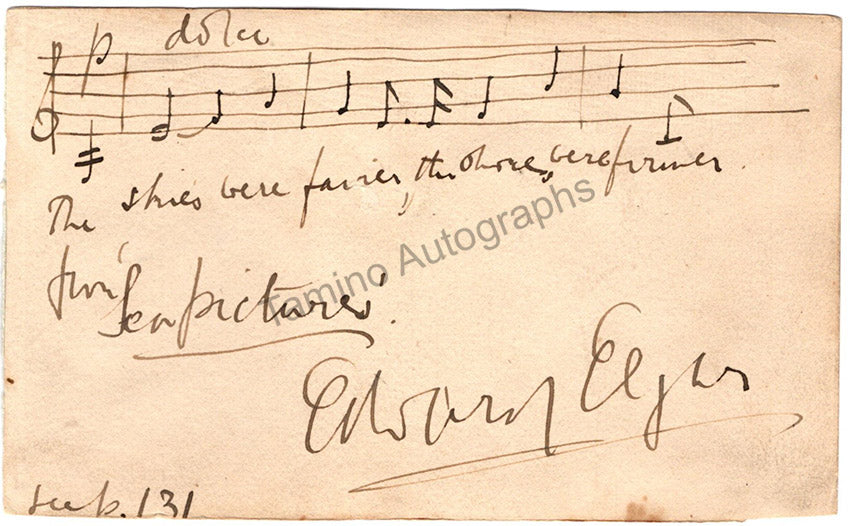 p dolce
The skies were fairer, the shores were firmer
from 'Sea pictures'.
Tamino Autographs
Edward Elgar
see p. 131